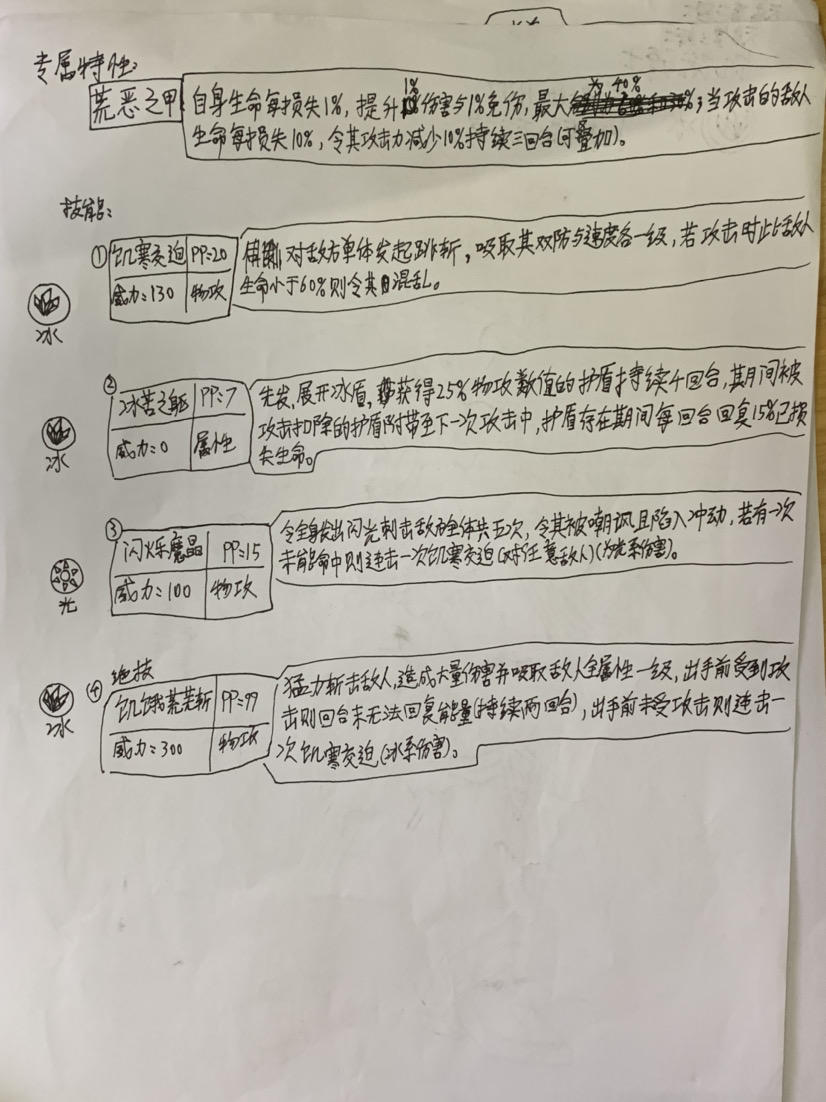 专属特性:
荒恶之甲
自身生命每损失1%,提升1%伤害与1%免伤,最大为40%;当攻击的敌人
生命每损失10%,令其攻击力减少10%持续三回合(可叠加)。
技能:
① 饥寒交迫 PP=20
威力=130 物攻
冰
对敌方单体发起跳斩,吸取其双防与速度各一级,若攻击时此敌人
生命小于60%则令其混乱。
② 冰苦之躯 PP=7
威力=0 属性
冰
先发,展开冰盾,获得25%物攻数值的护盾持续4回合,其间被
攻击扣除的护盾附带至下一次攻击中,护盾存在期间每回合回复15%已损
失生命。
③ 闪烁魔晶 PP=15
威力=100 物攻
光
令全身发出闪光刺击敌方全体共五次,令其被嘲讽且陷入冲动,若有一次
未能命中则连击一次饥寒交迫(对任意敌人)(为光系伤害)。
绝技
④ 饥饿荒芜斩 PP=99
威力=300 物攻
冰
猛力斩击敌人,造成大量伤害并吸取敌人全属性一级,出手前受到攻
击则回合末无法回复能量(持续两回合),出手前未受攻击则连击一
次饥寒交迫(冰系伤害)。